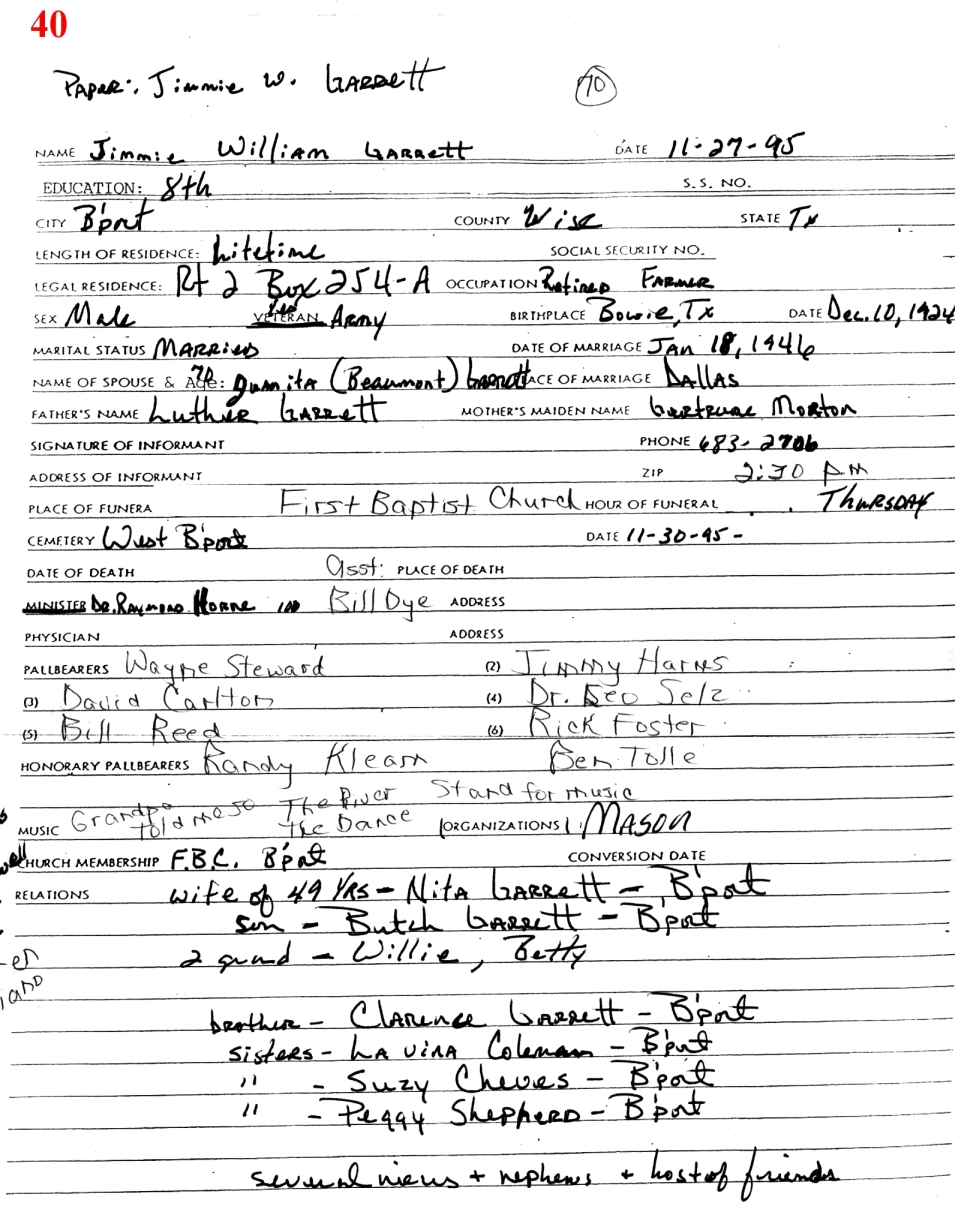 40
PAPER: Jimmie W. GARRETT 70
NAME Jimmie William GARRETT DATE 11-27-95
EDUCATION: 8th S.S. NO.
CITY B'port COUNTY Wise STATE Tx
LENGTH OF RESIDENCE: Lifetime SOCIAL SECURITY NO.
LEGAL RESIDENCE: Rt 2 Box 254-A OCCUPATION Retired FARMER
SEX Male VETERAN ARMY BIRTHPLACE Bowie, Tx DATE Dec. 10, 1924
MARITAL STATUS MARRIED DATE OF MARRIAGE JAN 18, 1946
NAME OF SPOUSE & Age: Juanita (Beaumont) GARRETT ACE OF MARRIAGE DALLAS
FATHER'S NAME Luther GARRETT MOTHER'S MAIDEN NAME Gertrude Morton
SIGNATURE OF INFORMANT PHONE 683-2706
ADDRESS OF INFORMANT ZIP 2:30 PM
PLACE OF FUNERA First Baptist Church HOUR OF FUNERAL THURSDAY
CEMETERY West B'port DATE 11-30-95-
DATE OF DEATH Asst: PLACE OF DEATH
MINISTER DR. RAYMOND HORNE Bill Dye ADDRESS
PHYSICIAN ADDRESS
PALLBEARERS Wayne Steward (2) Jimmy Harns
(3) David Carlton (4) Dr. Geo Selz
(5) Bill Reed (6) Rick Foster
HONORARY PALLBEARERS Randy Klearn Ben Tolle
Grandpa told me so The River Stand for music
MUSIC The Dance ORGANIZATIONS MASON
CHURCH MEMBERSHIP F.B.C. B'port CONVERSION DATE
RELATIONS wife of 49 YRS - NITA GARRETT - B'port
son - Butch GARRETT - B'port
2 grand - Willie, Betty
brother - CLARENCE GARRETT - B'port
sisters - LA VIRA Coleman - B'port
" - Suzy Cheves - B'port
" - Peggy SHEPHERD - B'port
several nieces + nephews + host of friends